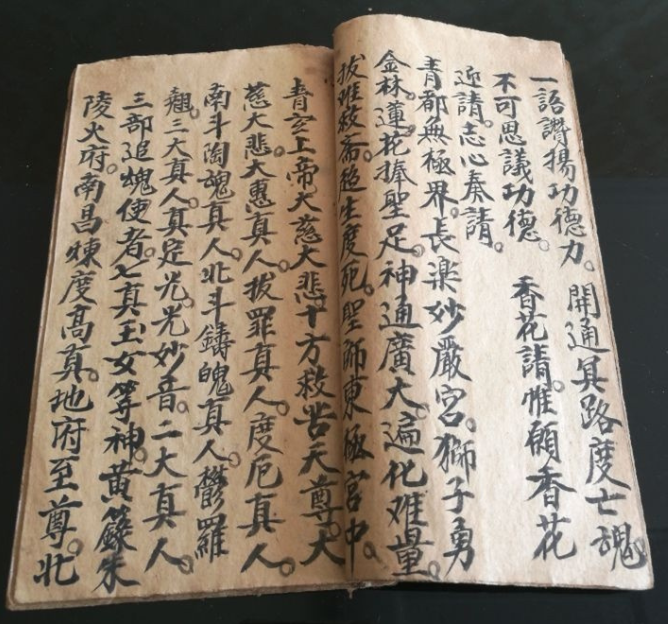 一語讚揚功德力。開通冥路度亡魂
不可思議功德。香花請。惟願香花
迎請。志心奏請。
青都無極界。長楽妙嚴宮。獅子勇
金林。蓮花捧聖足。神通廣大。遍化难量。
拔唯救斋超生度死。聖師東極宮中。
青玄上帝大慈大悲十方救苦天尊。大
慈大悲大惠真人。拔罪真人。度厄真人。
南斗陶魂真人。北斗鑄魄真人。欝羅
翹三大真人。真定光。光妙音。二大真人。
三部追魂使者。七真玉女等神。黄籙朱
陵火府。南昌煉度高真。地府至尊。北